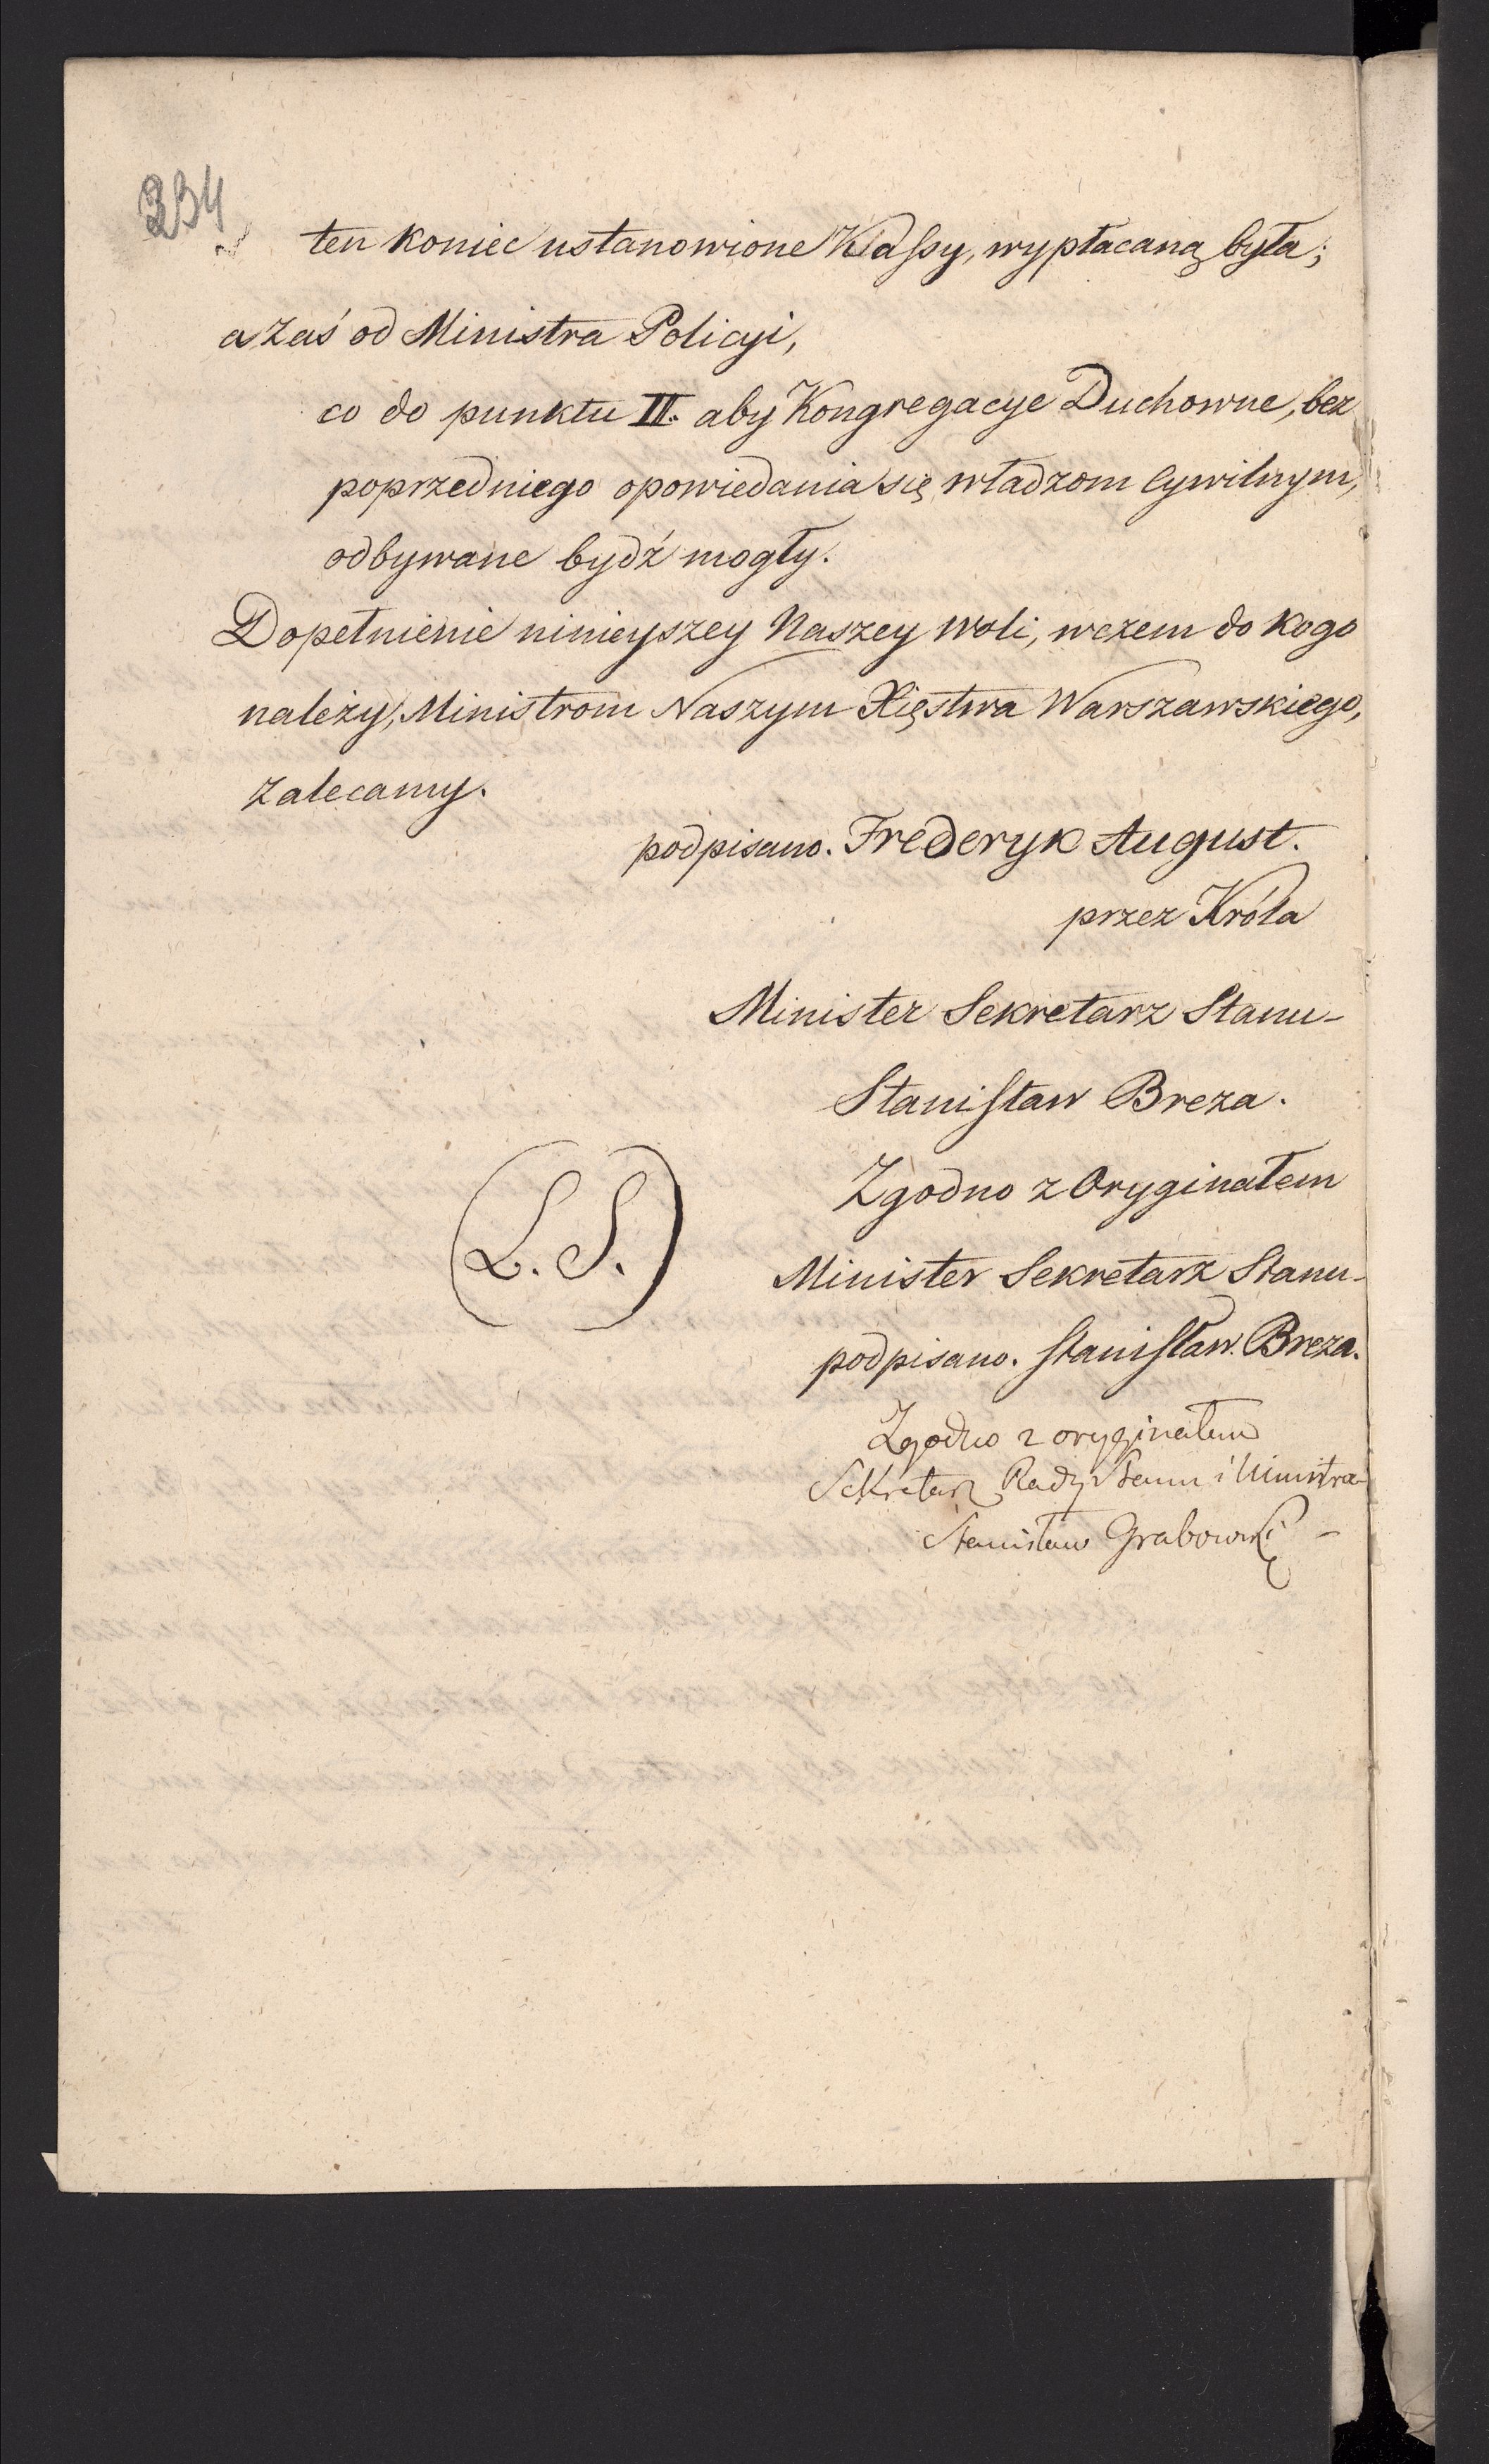 334
ten koniec ustanowione Kassy, wypłacaną była;
a zaś od Ministra Policyi,
co do punktu II. aby Kongregacye Duchowne, bez
poprzedniego opowiedania się władzom Cywilnym,
odbywane bydź mogły.
Dopełnienie ninieyszey Naszey woli, wczem do kogo
należy, Ministrom Naszym Xięstwa Warszawskiego,
zalecamy.
podpisano. Frederyk August.
przez Króla
Minister Sekretarz Stanu-
Stanisław Breza.
(L. S.)
Zgodno z Oryginałem
Minister Sekretarz Stanu-
podpisano. Stanisław Breza.
Zgodno z oryginałem
Sekretarz Rady Stanu i Ministra-
Stanisław Grabowski -